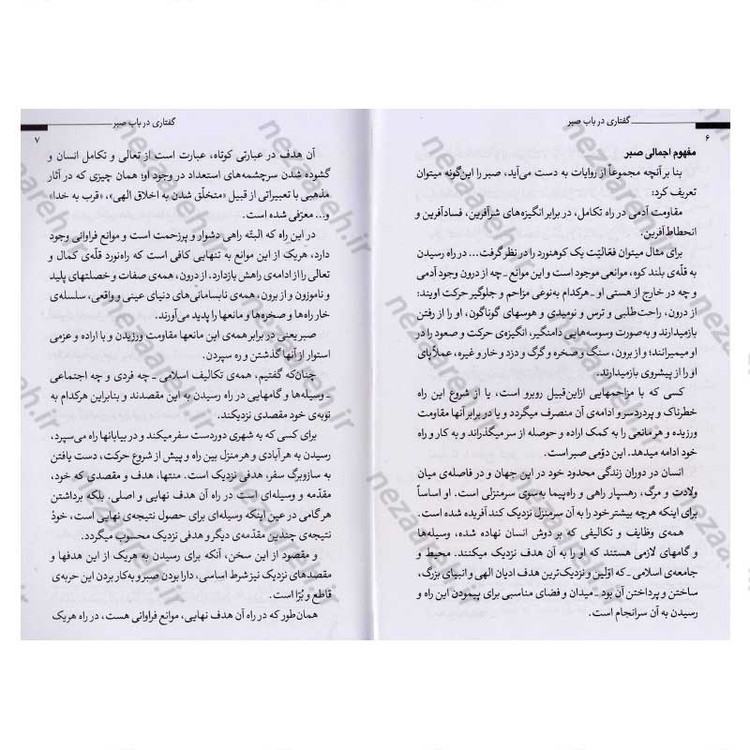 گفتاری در باب صبر
۶
مفهوم اجمالی صبر
بنا بر آنچه مجموعاً از روایات به دست می‌آید، صبر را این‌گونه میتوان
تعریف کرد:
مقاومت آدمی در راه تکامل، در برابر انگیزه‌های شرآفرین، فسادآفرین و
انحطاط‌آفرین.
برای مثال میتوان فعّالیّت یک کوهنورد را در نظر گرفت... در راه رسیدن
به قلّه‌ی بلند کوه، موانعی موجود است و این موانع ـ چه از درون وجود آدمی
و چه در خارج از هستی او ـ هرکدام به‌نوعی مزاحم و جلوگیر حرکت اویند:
از درون، راحت‌طلبی و ترس و نومیدی و هوسهای گوناگون، او را از رفتن
بازمیدارند و به‌صورت وسوسه‌هایی دامنگیر، انگیزه‌ی حرکت و صعود را در
او میمیرانند؛ و از برون، سنگ و صخره و گرگ و دزد و خار و غیره، عملاً پای
او را از پیشروی بازمیدارند.
کسی که با مزاحمهایی ازاین‌قبیل روبرو است، یا از شروع این راه
خطرناک و پردردسر و ادامه‌ی آن منصرف میگردد و یا در برابر آنها مقاومت
ورزیده و هر مانعی را به کمک اراده و حوصله از سر میگذراند و به کار و راه
خود ادامه میدهد. این دوّمی صبر است.
انسان در دوران زندگی محدود خود در این جهان و در فاصله‌ی میان
ولادت و مرگ، رهسپار راهی و راه‌پیما به‌سوی سرمنزلی است. او اساساً
برای اینکه هرچه بیشتر خود را به آن سرمنزل نزدیک کند آفریده شده است.
همه‌ی وظایف و تکالیفی که بر دوش انسان نهاده شده، وسیله‌ها
و گامهای لازمی هستند که او را به آن هدف نزدیک میکنند. محیط و
جامعه‌ی اسلامی ـ که اوّلین و نزدیک‌ترین هدف ادیان الهی و انبیای بزرگ،
ساختن و پرداختن آن بود ـ میدان و فضای مناسبی برای پیمودن این راه و
رسیدن به آن سرانجام است.
گفتاری در باب صبر
۷
آن هدف در عبارتی کوتاه، عبارت است از تعالی و تکامل انسان و
گشوده شدن سرچشمه‌های استعداد در وجود او؛ همان چیزی که در آثار
مذهبی با تعبیراتی از قبیل «متخلّق شدن به اخلاق الهی»، «قرب به خدا»
و... معرّفی شده است.
در این راه که البتّه راهی دشوار و پرزحمت است و موانع فراوانی وجود
دارد، هریک از این موانع به تنهایی کافی است که راه‌نورد قلّه‌ی کمال و
تعالی را از ادامه‌ی راهش بازدارد. از درون، همه‌ی صفات و خصلتهای پلید
و ناموزون و از برون، همه‌ی نابسامانی‌های دنیای عینی و واقعی، سلسله‌ی
خار راه‌ها و صخره‌ها و مانعها را پدید می‌آورند.
صبر یعنی در برابر همه‌ی این مانعها مقاومت ورزیدن و با اراده و عزمی
استوار از آنها گذشتن و ره سپردن.
چنان‌که گفتیم، همه‌ی تکالیف اسلامی ـ چه فردی و چه اجتماعی
ـ وسیله‌ها و گامهایی در راه رسیدن به این مقصدند و بنابراین هرکدام به
نوبه‌ی خود مقصدی نزدیکند.
برای کسی که به شهری دوردست سفر میکند و در بیابانها راه می‌سپرد،
رسیدن به هر آبادی و هر منزل بین راه و پیش از شروع حرکت، دست یافتن
به سازوبرگ سفر، هدفی نزدیک است. منتها، هدف و مقصدی که خود،
مقدّمه و وسیله‌ای است در راه آن هدف نهایی و اصلی. بلکه برداشتن
هر گامی در عین اینکه وسیله‌ای برای حصول نتیجه‌ی نهایی است، خودْ
نتیجه‌ی چندین مقدّمه‌ی دیگر و هدفی نزدیک محسوب میگردد.
و مقصود از این سخن، آنکه برای رسیدن به هریک از این هدفها و
مقصدهای نزدیک نیز شرط اساسی، دارا بودن صبر و به‌کار بردن این حربه‌ی
قاطع و بُرّا است.
همان‌طور که در راه آن هدف نهایی، موانع فراوانی هست، در راه هریک
nezaareh.ir